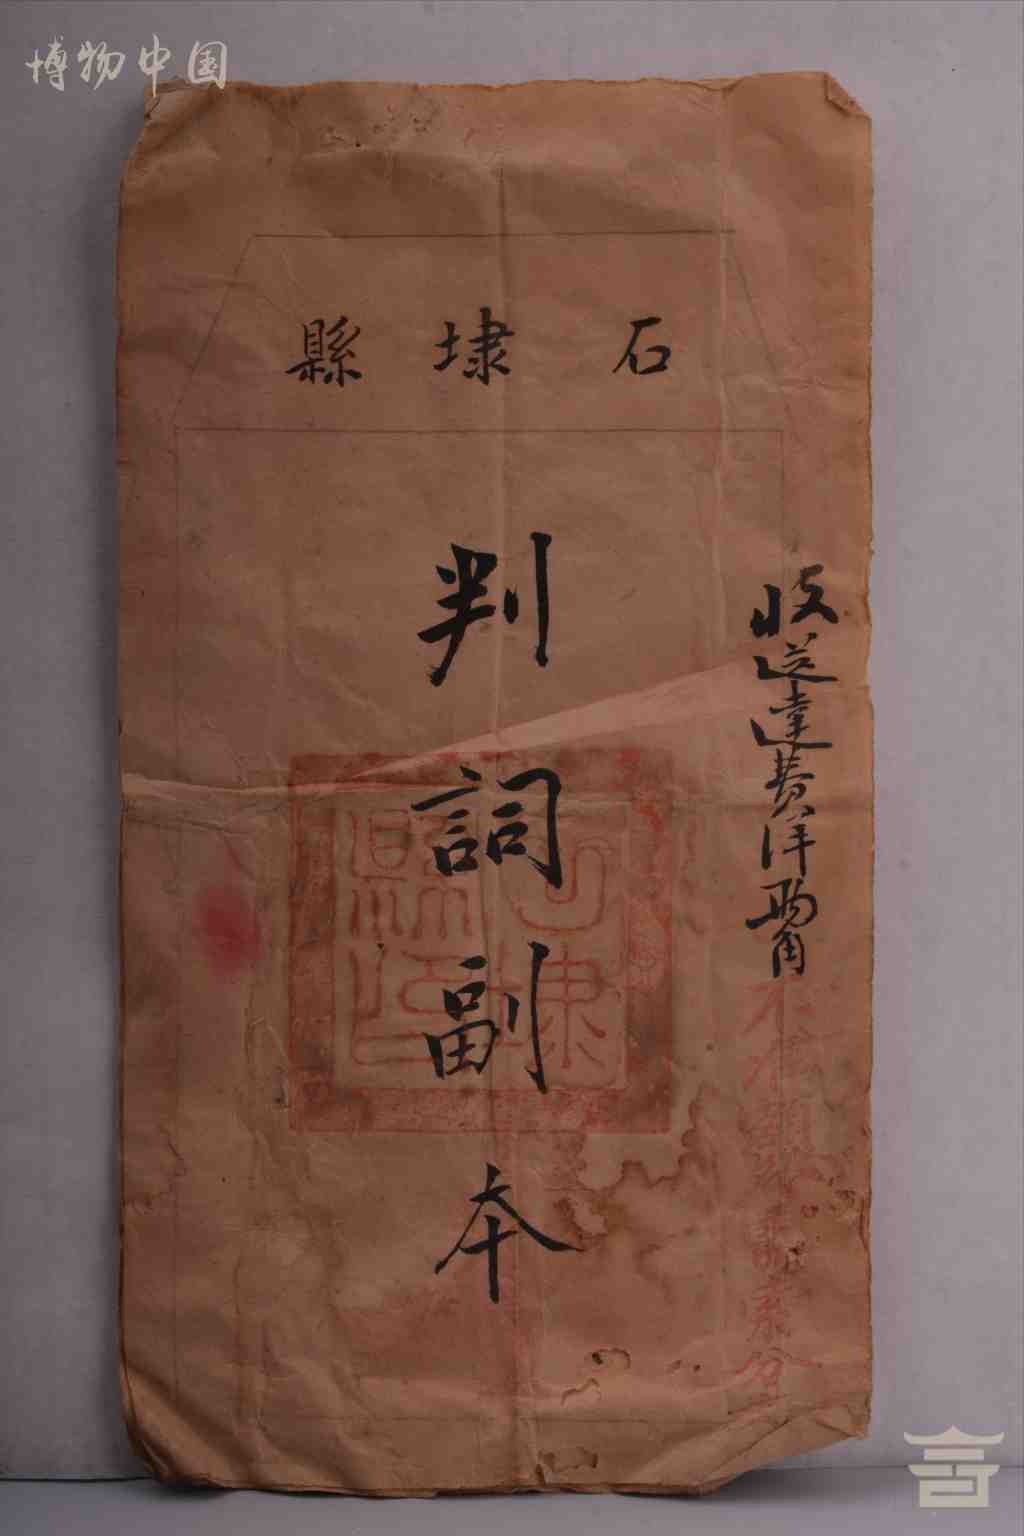 博物中国
石埭縣
判詞副本
收送達費洋兩角
石埭縣印